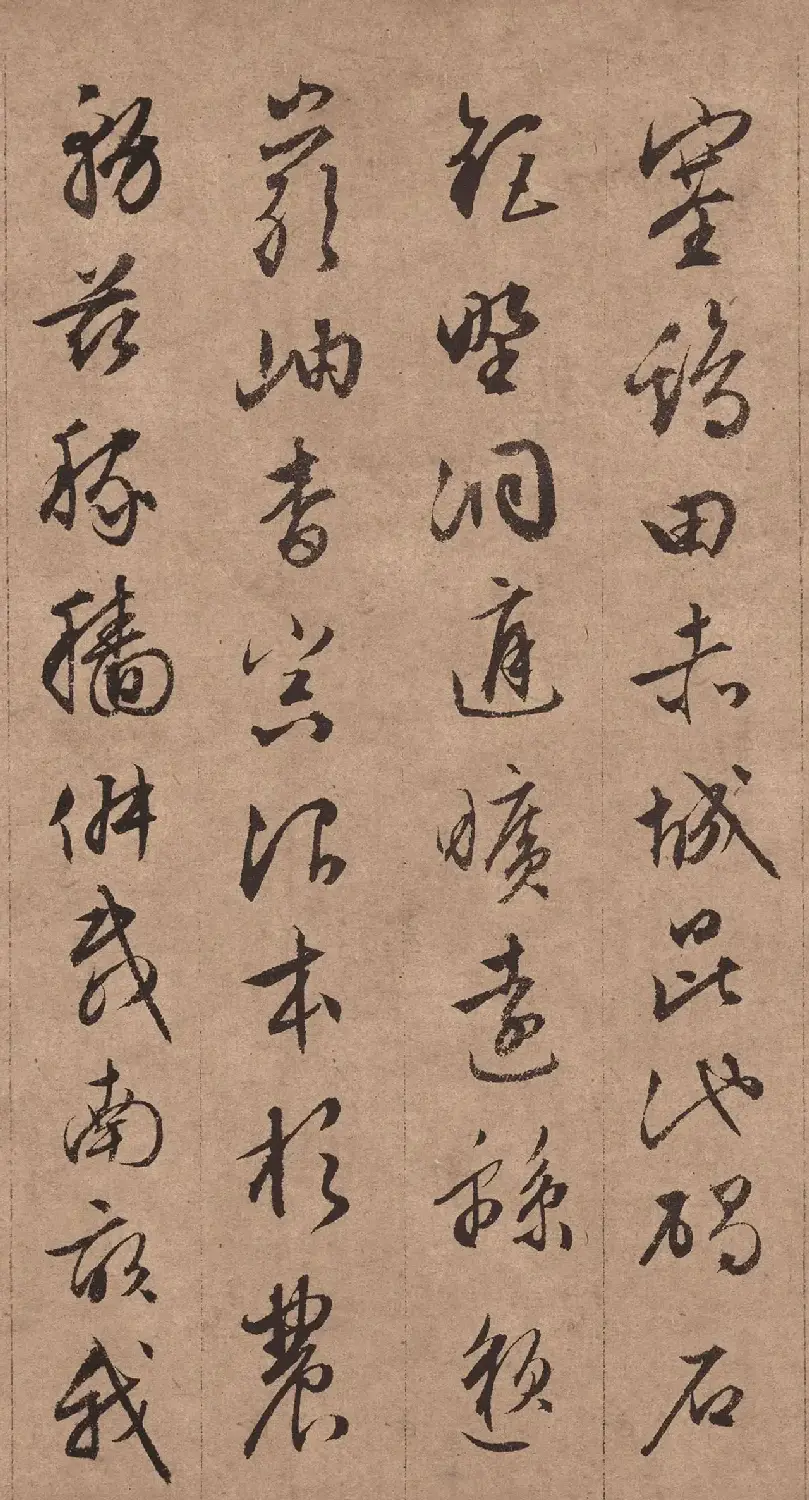 塞鷄田赤城昆池碣石
鉅野洞庭曠遠緜邈
巖岫杳冥治本於農
務茲稼穡俶載南畝我